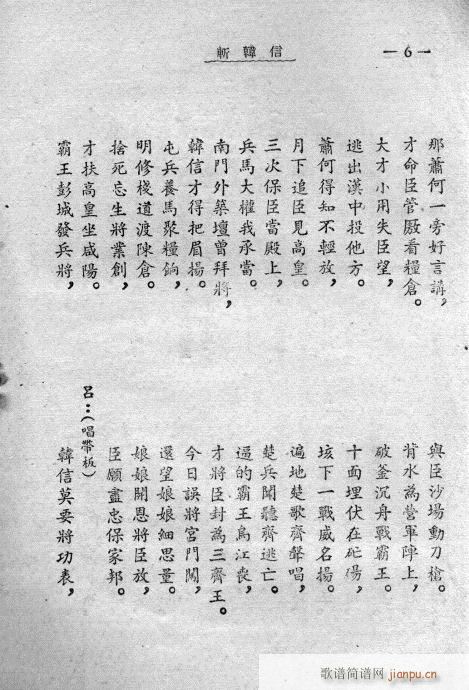 信韓斬
—6—
那蕭何一旁好言講，
才命臣管廒看糧倉。
大才小用失臣望，
逃出漢中投他方。
蕭何得知不輕放，
月下追臣見高皇。
三次保臣當殿上，
兵馬大權我承當。
南門外築壇曾拜將，
韓信才得把眉揚。
屯兵養馬聚糧餉，
明修棧道渡陳倉。
捨死忘生將業創，
才扶高皇坐咸陽。
霸王彭城發兵將，
與臣沙場動刀槍。
背水為營軍陣上，
破釜沉舟戰霸王。
十面埋伏在芒碭，
垓下一戰威名揚。
遍地楚歌齊聲唱，
楚兵聞聽齊逃亡。
逼的霸王烏江喪，
才將臣封為三齊王。
今日誤將宮門闖，
還望娘娘細思量。
娘娘開恩將臣放，
臣願盡忠保家邦。
呂：（唱帶板）
韓信莫要將功表，
歌谱简谱网
jianpu.cn